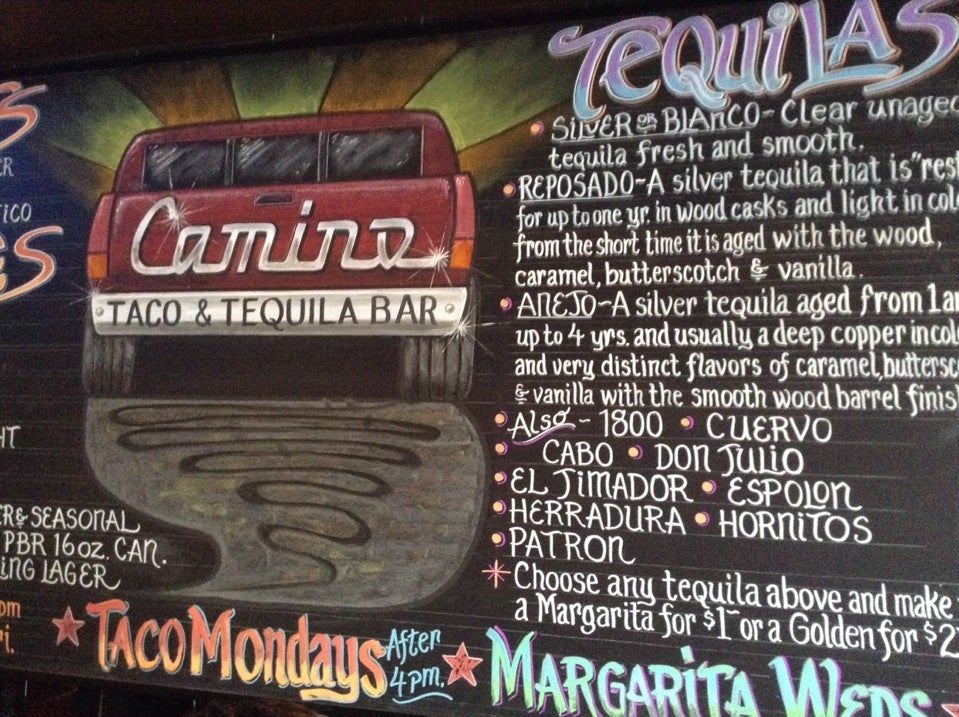 TEQUILAS
SILVER OR BLANCO - Clear unaged
tequila fresh and smooth.
REPOSADO - A silver tequila that is "rest
for up to one yr. in wood casks and light in col
from the short time it is aged with the wood,
caramel, butterscotch & vanilla.
ANEJO - A silver tequila aged from 1 a
up to 4 yrs. and usually a deep copper in col
and very distinct flavors of caramel, buttersc
& vanilla with the smooth wood barrel finis
Also - 1800 • CUERVO
CABO • DON JULIO
EL JIMADOR • ESPOLON
HERRADURA • HORNITOS
PATRON
* Choose any tequila above and make
a Margarita for $1 or a Golden for $2
Camino
TACO & TEQUILA BAR
ER
FICO
ES
HT
ER & SEASONAL
PBR 16 oz. CAN.
ING LAGER
pm
ri.
TACO MONDAYS After 4 pm.
MARGARITA WEDS